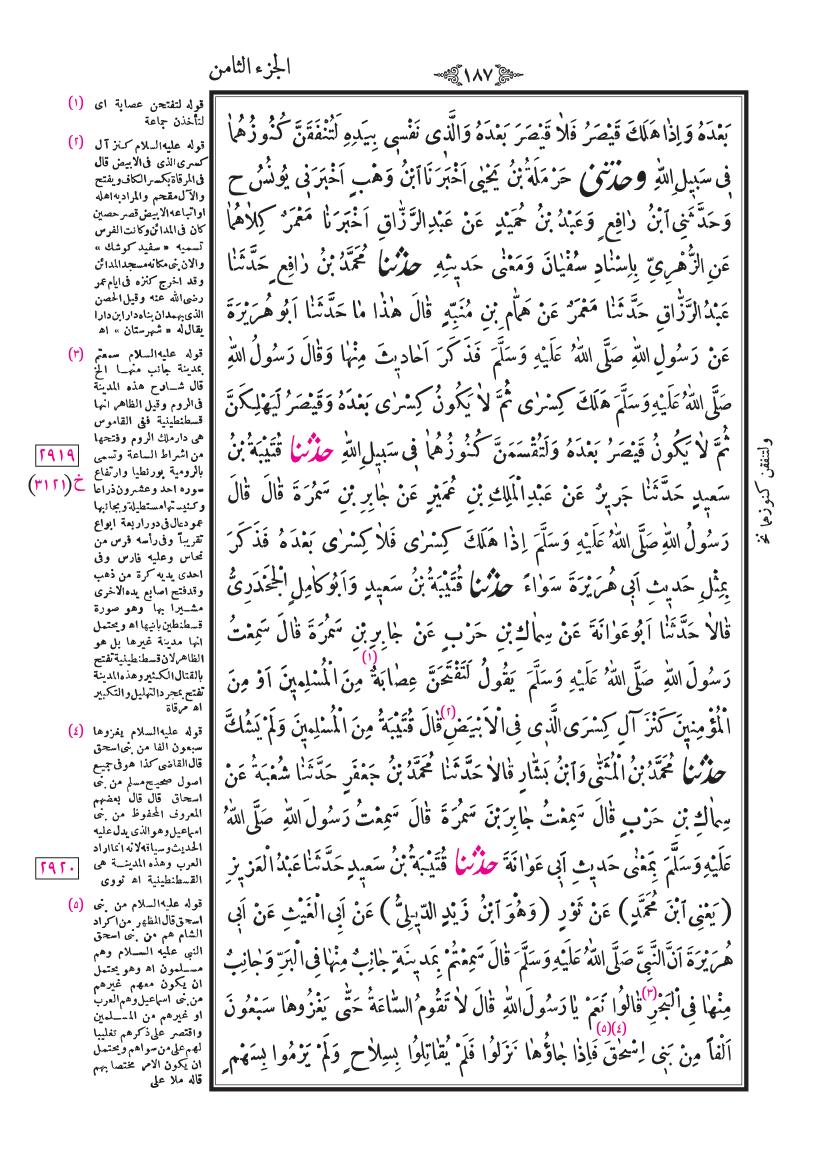 الجزء الثامن
١٨٧
بَعْدَهُ وَإِذَا هَلَكَ قَيْصَرُ فَلَا قَيْصَرَ بَعْدَهُ وَالَّذِى نَفْسِى بِيَدِهِ لَتُنْفَقَنَّ كُنُوزُهُمَا
فِى سَبِيلِ اللهِ وحَدَّثَنِى حَرْمَلَةُ بْنُ يَحْيٰى أَخْبَرَنَا ابْنُ وَهْبٍ أَخْبَرَنِى يُونُسُ ح
وَحَدَّثَنِى ابْنُ رَافِعٍ وَعَبْدُ بْنُ حُمَيْدٍ عَنْ عَبْدِالرَّزَّاقِ أَخْبَرَنَا مَعْمَرٌ كِلَاهُمَا
عَنِ الزُّهْرِىِّ بِإِسْنَادِ سُفْيَانَ وَمَعْنٰى حَدِيثِهِ حَدَّثَنَا مُحَمَّدُ بْنُ رَافِعٍ حَدَّثَنَا
عَبْدُالرَّزَّاقِ حَدَّثَنَا مَعْمَرٌ عَنْ هَمَّامِ بْنِ مُنَبِّهٍ قَالَ هٰذَا مَا حَدَّثَنَا أَبُو هُرَيْرَةَ
عَنْ رَسُولِ اللهِ صَلَّى اللهُ عَلَيْهِ وَسَلَّمَ فَذَكَرَ أَحَادِيثَ مِنْهَا وَقَالَ رَسُولُ اللهِ
صَلَّى اللهُ عَلَيْهِ وَسَلَّمَ هَلَكَ كِسْرٰى ثُمَّ لَا يَكُونُ كِسْرٰى بَعْدَهُ وَقَيْصَرُ لَيَهْلِكَنَّ
ثُمَّ لَا يَكُونُ قَيْصَرُ بَعْدَهُ وَلَتُقْسَمَنَّ كُنُوزُهُمَا فِى سَبِيلِ اللهِ حَدَّثَنَا قُتَيْبَةُ بْنُ
سَعِيدٍ حَدَّثَنَا جَرِيرٌ عَنْ عَبْدِ الْمَلِكِ بْنِ عُمَيْرٍ عَنْ جَابِرِ بْنِ سَمُرَةَ قَالَ قَالَ
رَسُولُ اللهِ صَلَّى اللهُ عَلَيْهِ وَسَلَّمَ إِذَا هَلَكَ كِسْرٰى فَلَا كِسْرٰى بَعْدَهُ فَذَكَرَ
بِمِثْلِ حَدِيثِ أَبِى هُرَيْرَةَ سَوَاءً حَدَّثَنَا قُتَيْبَةُ بْنُ سَعِيدٍ وَأَبُو كَامِلٍ الْجَحْدَرِىُّ
قَالَا حَدَّثَنَا أَبُو عَوَانَةَ عَنْ سِمَاكِ بْنِ حَرْبٍ عَنْ جَابِرِ بْنِ سَمُرَةَ قَالَ سَمِعْتُ
رَسُولَ اللهِ صَلَّى اللهُ عَلَيْهِ وَسَلَّمَ يَقُولُ لَتَفْتَحَنَّ عِصَابَةٌ (١) مِنَ الْمُسْلِمِينَ أَوْ مِنَ
الْمُؤْمِنِينَ كَنْزَ آلِ كِسْرَى الَّذِى فِى الْأَبْيَضِ (٢) قَالَ قُتَيْبَةُ مِنَ الْمُسْلِمِينَ وَلَمْ يَشُكَّ
حَدَّثَنَا مُحَمَّدُ بْنُ الْمُثَنّٰى وَابْنُ بَشَّارٍ قَالَا حَدَّثَنَا مُحَمَّدُ بْنُ جَعْفَرٍ حَدَّثَنَا شُعْبَةُ عَنْ
سِمَاكِ بْنِ حَرْبٍ قَالَ سَمِعْتُ جَابِرَ بْنَ سَمُرَةَ قَالَ سَمِعْتُ رَسُولَ اللهِ صَلَّى اللهُ
عَلَيْهِ وَسَلَّمَ بِمَعْنٰى حَدِيثِ أَبِى عَوَانَةَ حَدَّثَنَا قُتَيْبَةُ بْنُ سَعِيدٍ حَدَّثَنَا عَبْدُ الْعَزِيزِ
(يَعْنِى ابْنَ مُحَمَّدٍ) عَنْ ثَوْرٍ (وَهُوَ ابْنُ زَيْدٍ الدِّيلِىُّ) عَنْ أَبِى الْغَيْثِ عَنْ أَبِى
هُرَيْرَةَ أَنَّ النَّبِىَّ صَلَّى اللهُ عَلَيْهِ وَسَلَّمَ قَالَ سَمِعْتُمْ بِمَدِينَةٍ جَانِبٌ مِنْهَا فِى الْبَرِّ وَجَانِبٌ
مِنْهَا فِى الْبَحْرِ (٣) قَالُوا نَعَمْ يَا رَسُولَ اللهِ قَالَ لَا تَقُومُ السَّاعَةُ حَتّٰى يَغْزُوهَا سَبْعُونَ
أَلْفاً مِنْ بَنِى إِسْحٰقَ (٤)(٥) فَإِذَا جَاؤُهَا نَزَلُوا فَلَمْ يُقَاتِلُوا بِسِلَاحٍ وَلَمْ يَرْمُوا بِسَهْمٍ
ولتنفقن كنوزهما نخ
٢٩١٩
خ (٣١٢١)
٢٩٢٠
(١) قوله لتفتحن عصابة اى
لتأخذن جماعة
(٢) قوله عليه السلام كنز آل
كسرى الذى فى الابيض قال
فى المرقاة بكسر الكاف ويفتح
والآل مقحم والمراد به اهله
او اتباعه الابيض قصر حصين
كان فى المدائن وكانت الفرس
تسميه « سفيد كوشك »
والان بنى مكانه مسجد المدائن
وقد اخرج كنزه فى ايام عمر
رضى الله عنه وقيل الحصن
الذى بهمدان بناه دار ابن دارا
يقال له « شهرستان » اه
(٣) قوله عليه السلام سمعتم
بمدينة جانب منها الخ
قال شارح هذه المدينة
فى الروم وقيل الظاهر انها
قسطنطينية ففى القاموس
هى دار ملك الروم وفتحها
من اشراط الساعة وتسمى
بالرومية بورنطيا وارتفاع
سوره احد وعشرون ذراعا
وكنيستها مستطيلة وبجانبها
عمود عال فى دور اربعة ابواع
تقريباً وفى رأسه فرس من
نحاس وعليه فارس وفى
احدى يديه كرة من ذهب
وقد فتح اصابع يده الاخرى
مشيرا بها وهو صورة
قسطنطين بانيها اه ويحتمل
انها مدينة غيرها بل هو
الظاهر لان قسطنطينية تفتح
بالقتال الكثير وهذه المدينة
تفتح بمجرد التهليل والتكبير
اه مرقاة
(٤) قوله عليه السلام يغزوها
سبعون الفا من بنى اسحق
قال القاضى كذا هو فى جميع
اصول صحيح مسلم من بنى
اسحاق قال قال بعضهم
المعروف المحفوظ من بنى
اسماعيل وهو الذى يدل عليه
الحديث وسياقه لانه انما اراد
العرب وهذه المدينة هى
القسطنطينية اه نووى
(٥) قوله عليه السلام من بنى
اسحق قال المظهر من اكراد
الشام هم من بنى اسحق
النبى عليه السلام وهم
مسلمون اه وهو يحتمل
ان يكون معهم غيرهم
من بنى اسماعيل وهم العرب
او غيرهم من المسلمين
واقتصر على ذكرهم تغليبا
لهم على من سواهم ويحتمل
ان يكون الامر مختصا بهم
قاله ملا على